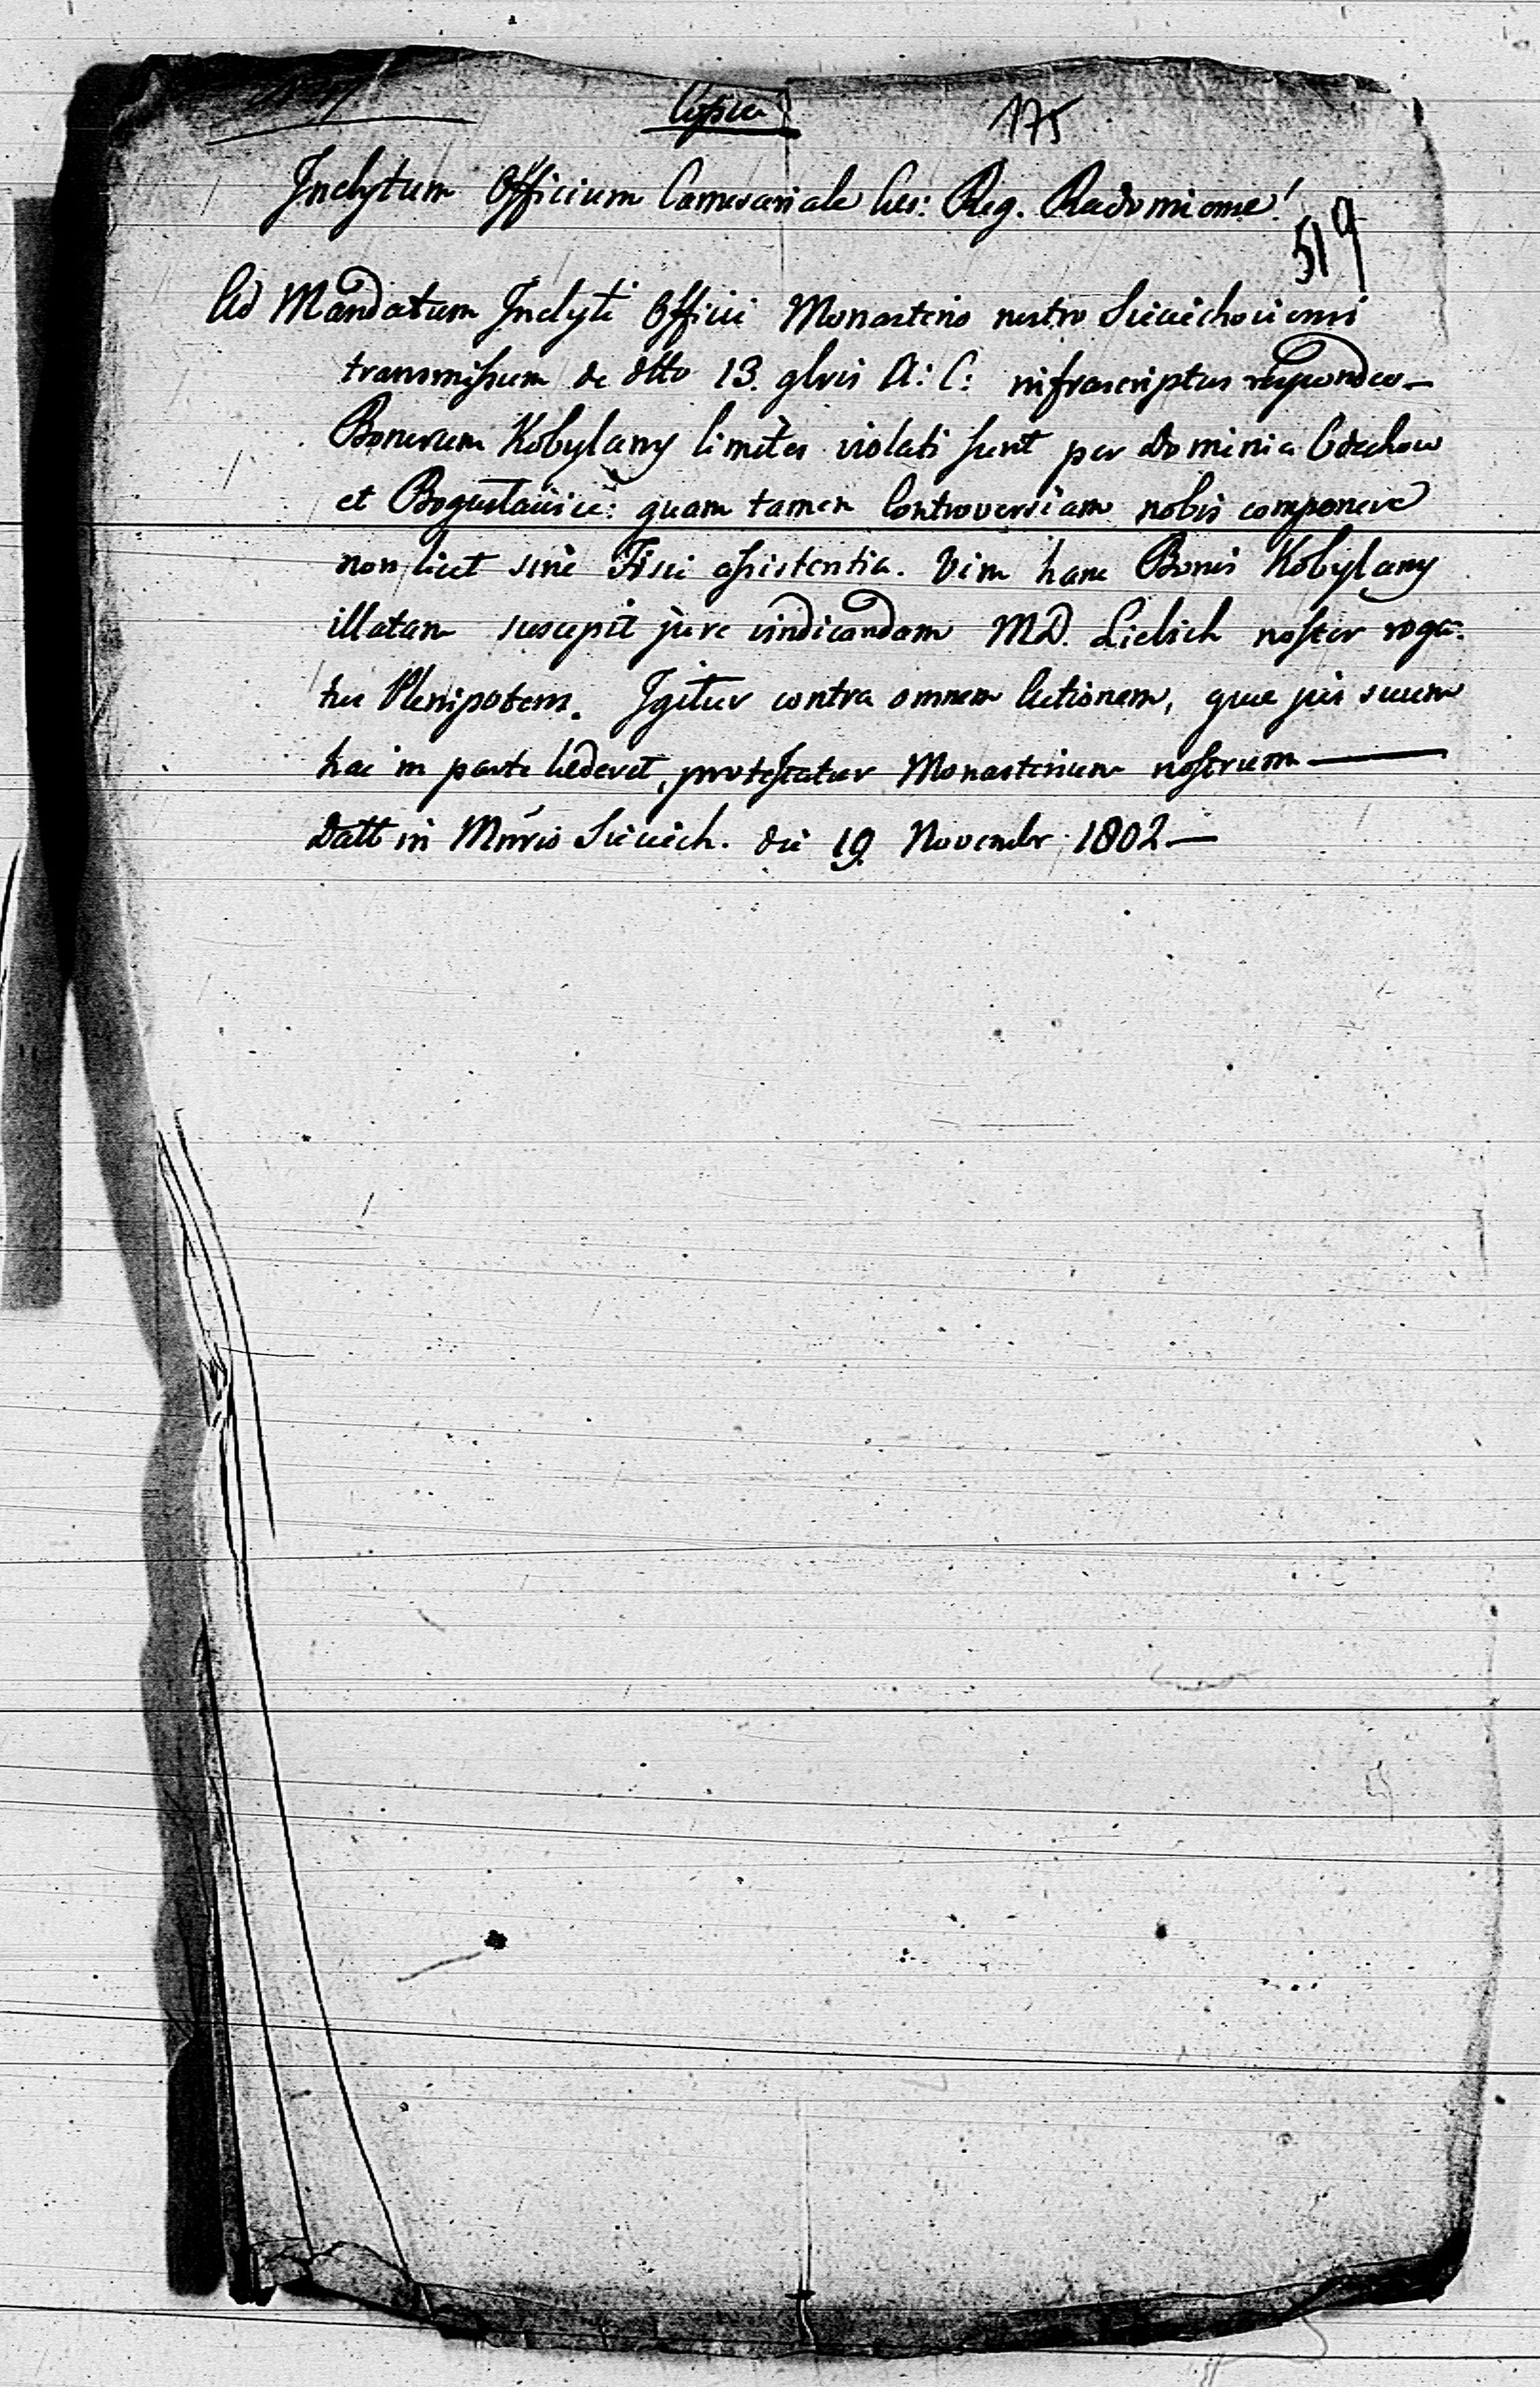 Copia
175
Inclytum Officium Camerariale Ces: Reg. Radomiense!
519
Ad Mandatum Inclyti Officii Monasterio nostro Sieciechoviensi
transmissum de dtto 13. 9bris A: C: infrascriptus respondeo —
Bonorum Kobylany limites violati sunt per Dominia Czechow
et Bogusławice: quam tamen Controversiam nobis componere
non licet sine Fisci assistentia. Vim hanc Bonis Kobylany
illatam suscepit jure vindicandam MD. Lielich noster roga-
tus Plenipotens. Igitur contra omnem Actionem, quae jus suum
hac in parte lederet, protestatur Monasterium nostrum —
Datt in Mnrio Sieciech. die 19 Novembr 1802 —